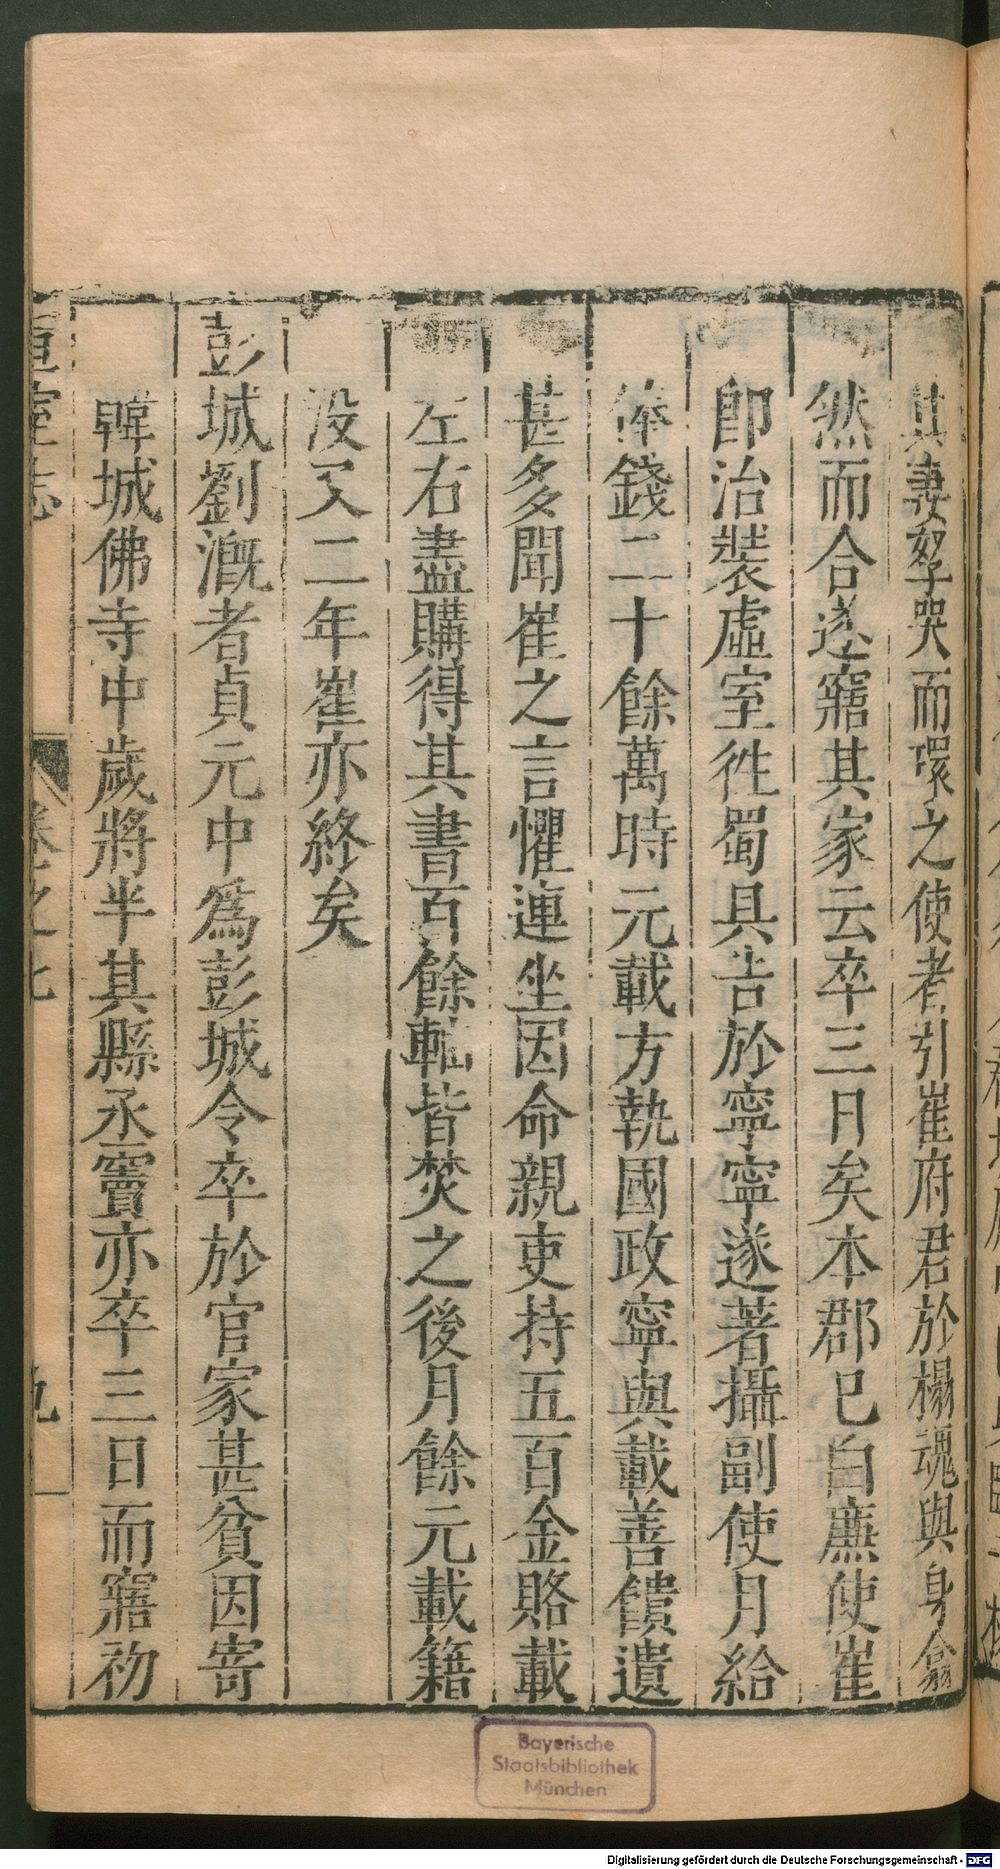 其妻孥哭而環之使者引崔府君於榻魂與身翕
然而合遂寤其家云卒三日矣本郡已白廉使崔
即治裝虛室徃蜀具告於寧寧遂著攝副使月給
俸錢二十餘萬時元載方執國政寧與載善饋遺
甚多聞崔之言懼連坐因命親吏持五百金賂載
左右盡購得其書百餘軸皆焚之後月餘元載籍
没又二年崔亦終矣
彭城劉溉者貞元中爲彭城令卒於官家甚貧因寄
韓城佛寺中歲將半其縣丞竇亦卒三日而寤初
宣室志
卷之七
九
Bayerische
Staatsbibliothek
München
Digitalisierung gefördert durch die Deutsche Forschungsgemeinschaft - DFG